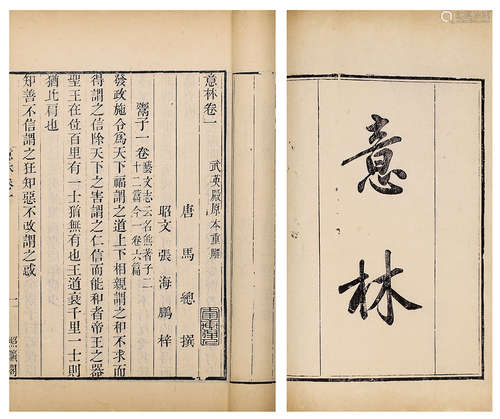 意林卷一
武英殿原本重雕
唐 馬總 撰
昭文 張海鵬 梓
鬻子一卷 藝文志云名熊著子二
十二篇今一卷六篇
發政施令為天下福謂之道上下相親謂之和不求而
得謂之信除天下之害謂之仁信而能和者帝王之器
聖王在位百里有一士猶無有也王道衰千里一士則
猶比肩也
知善不信謂之狂知惡不改謂之惑
一
照曠閣
意林